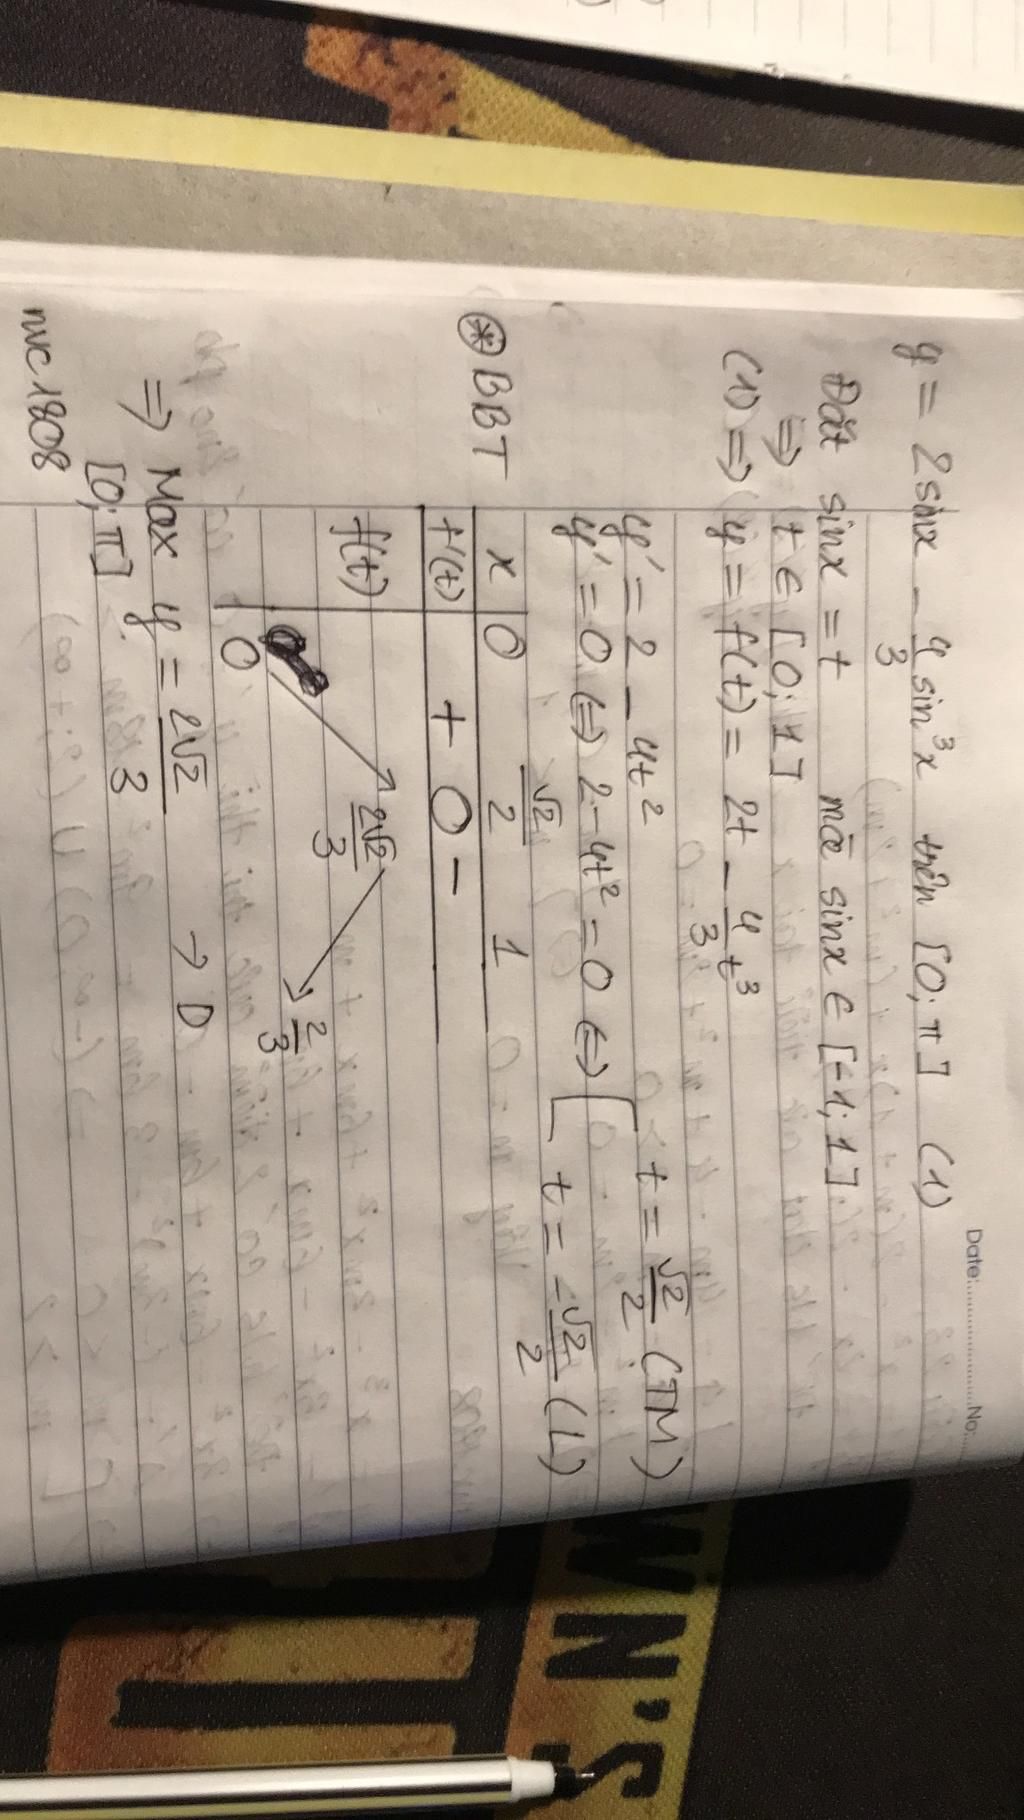 Date: No:
y = 2sinx - 4/3 sin³x trên [0; π] (1)
Đặt sinx = t mà sinx ∈ [-1; 1]
⇒ t ∈ [0; 1]
(1) ⇒ y = f(t) = 2t - 4/3 t³
y' = 2 - 4t²
y' = 0 ⇔ 2 - 4t² = 0 ⇔ [ t = √2/2 (TM)
t = -√2/2 (L)
⊛ BBT
x 0 √2/2 1
f'(t) + 0 -
f(t) 0 2√2/3 2/3
⇒ Max y = 2√2/3 → D
[0; π]
nvc1808
WN'S